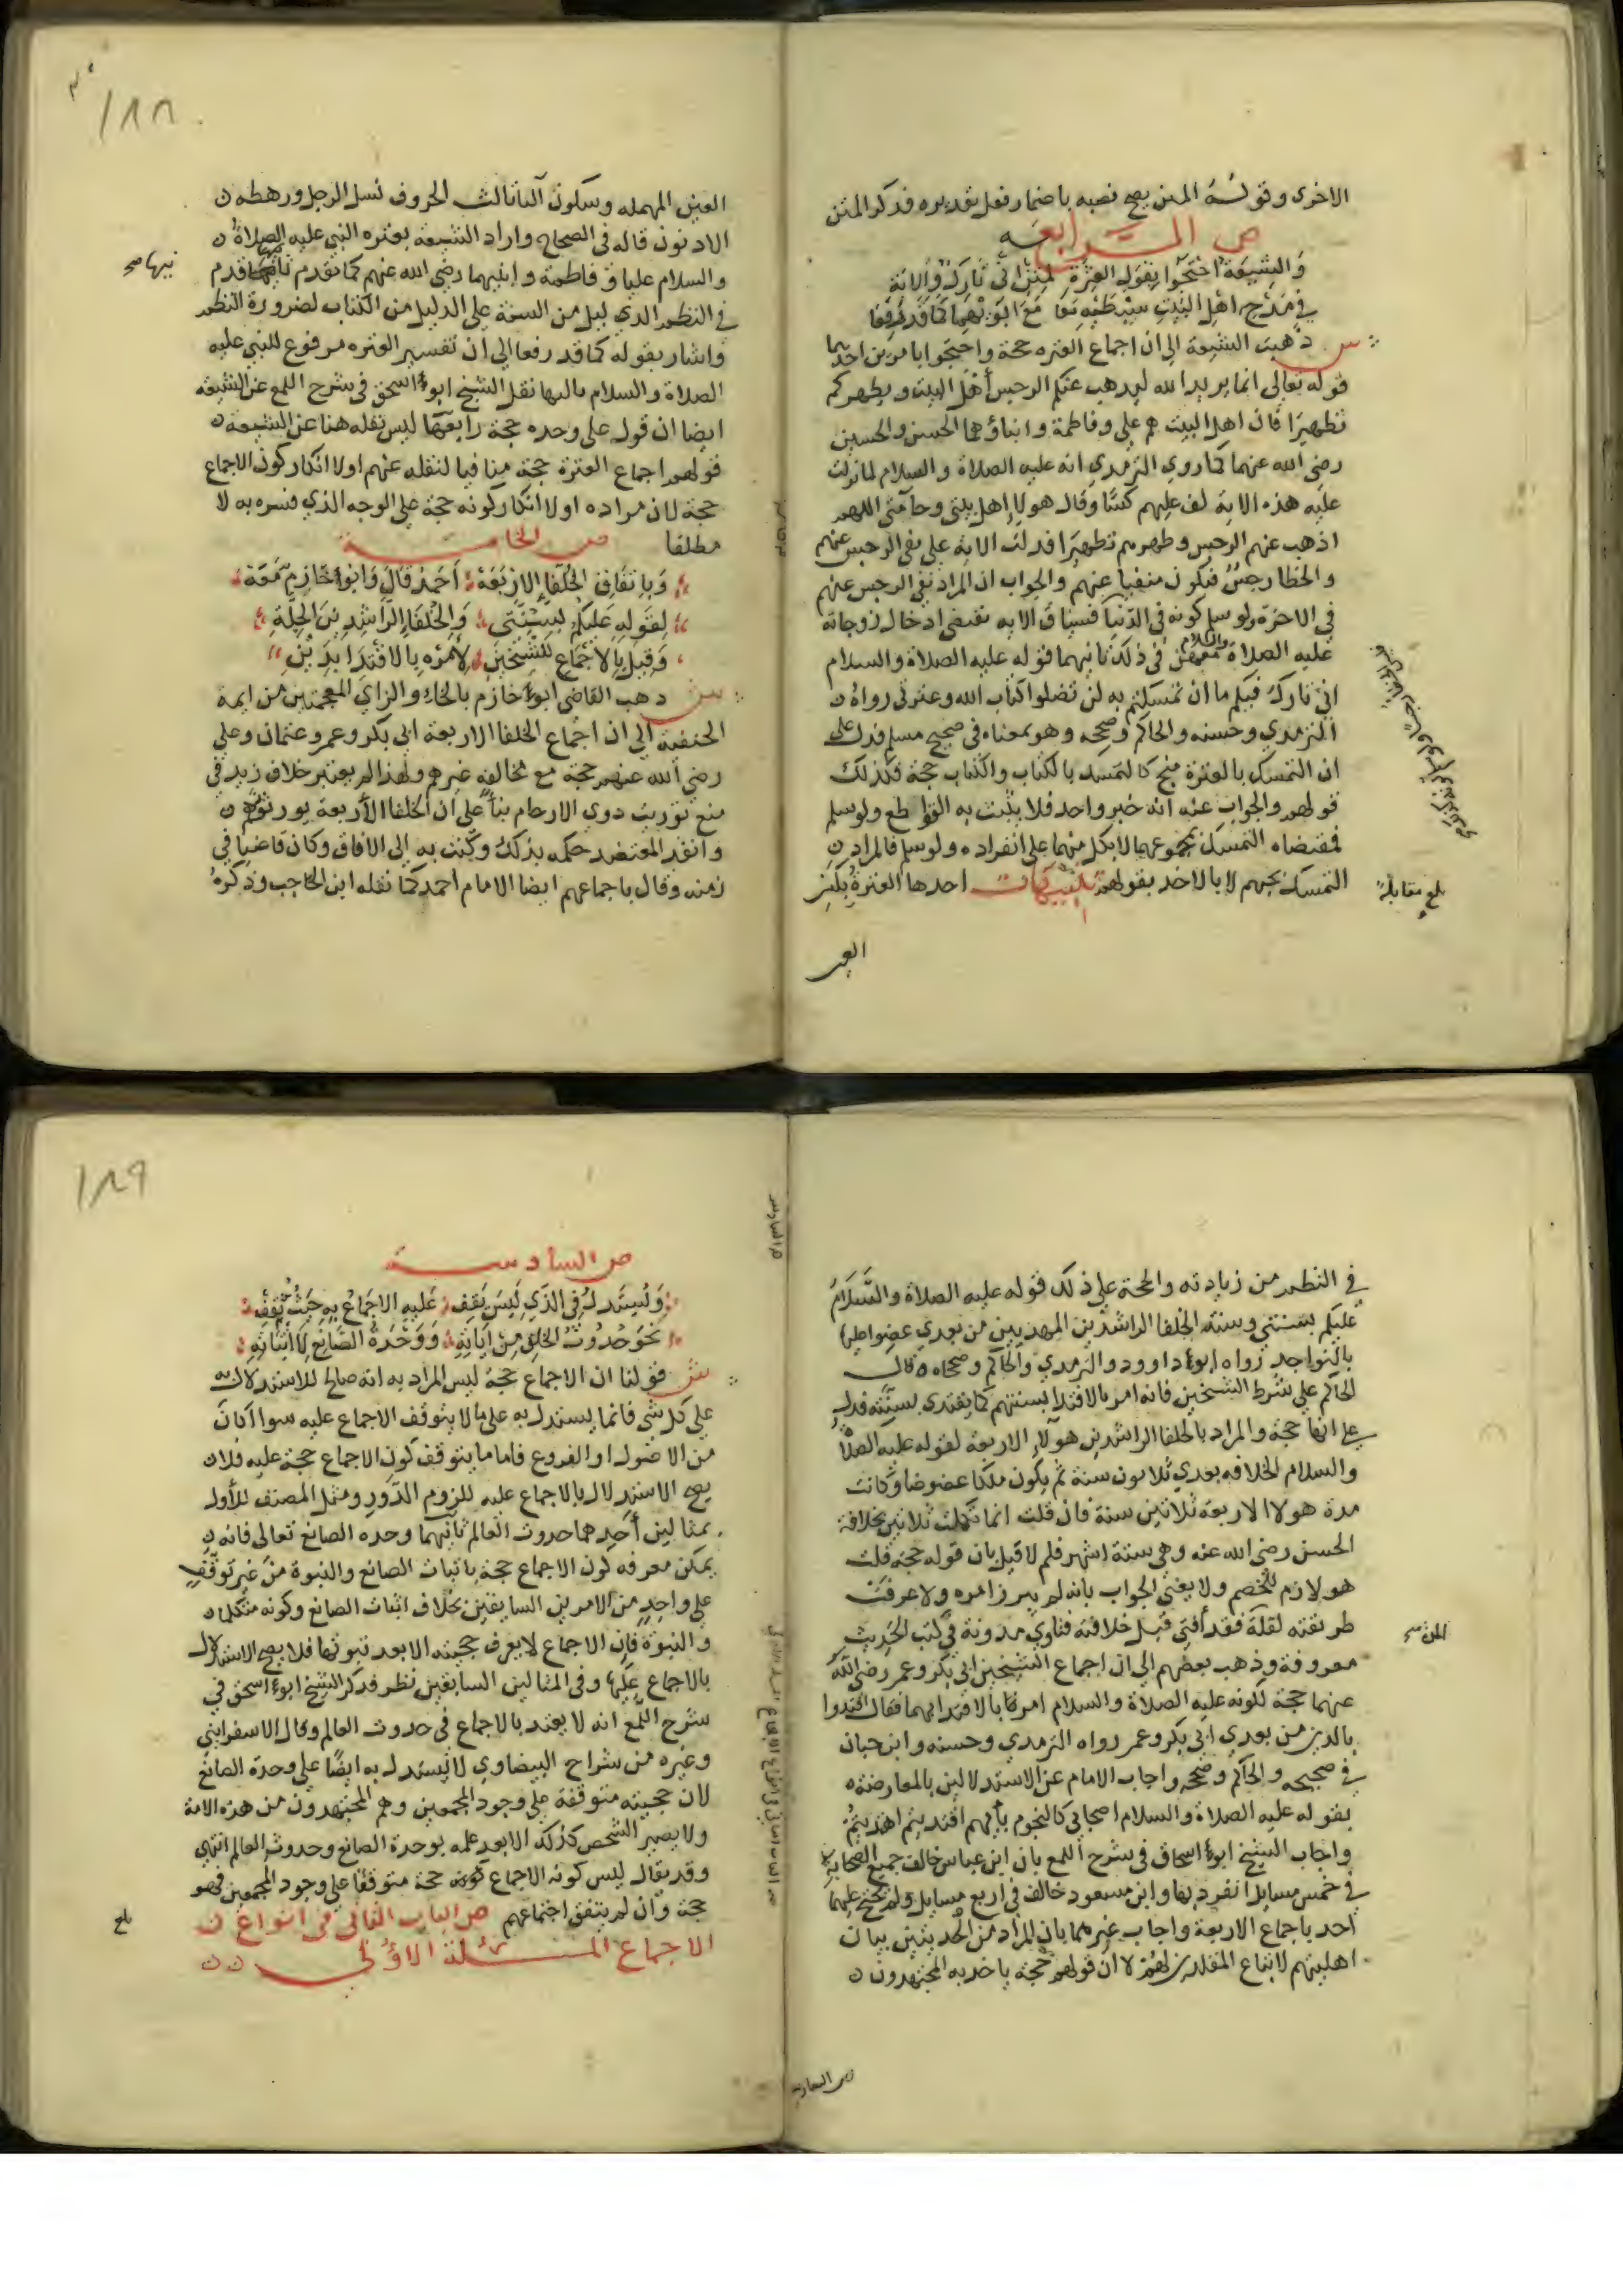 الاخرى وقوله المتن يصح نصبه باضمار فعل تقديره فذكر المتن
ص الرابعه
والشيعة احتجوا بقول العترة لمتن اني تارك والاية
في مدح اهل البيت سبطيه معا مع ابويهما كما قد رفعا
س ذهبت الشيعة الى ان اجماع العتره حجة واحتجوا بامرين احدهما
قوله تعالى انما يريد الله ليذهب عنكم الرجس اهل البيت ويطهركم
تطهيرا فان اهل البيت هم علي وفاطمة وابناؤهما الحسن والحسين
رضي الله عنهما كما روي الترمذي انه عليه الصلاة والسلام لما نزلت
عليه هذه الاية لف عليهم كسا وقال هولا اهل بيتي وخاصتي اللهم
اذهب عنهم الرجس وطهرهم تطهيرا فدلت الاية على نفي الرجس عنهم
والخطا رجس فيكون منفيا عنهم والجواب ان المراد نفي الرجس عنهم
في الاخرة ولو سلم كونه في الدنيا فسياق الايه تقتضي ادخال زوجاته
عليه الصلاة والسلام معهن في ذلك ثانيهما قوله عليه الصلاة والسلام
اني تارك فيكم ما ان تمسكتم به لن تضلوا كتاب الله وعترتي رواه
الترمذي وحسنه والحاكم وصححه وهو بمعناه في صحيح مسلم فدل على
ان التمسك بالعترة منج كالتمسك بالكتاب والكتاب حجة فكذلك
قولهم والجواب عنه انه خبر واحد فلا يثبت به القواطع ولو سلم
فمقتضاه التمسك بمجموعهما لا بكل منهما على انفراده ولو سلم فالمراد
التمسك بحبهم لا بالاخذ بقولهم تنبيهات احدها العترة بكسر
بلغ مقابلة
العين
١٨٨
العين المهمله وسكون التا ثالث الحروف نسل الرجل ورهطه
الادنون قاله في الصحاح واراد الشيعة بعتره النبي عليه الصلاة
والسلام عليا وفاطمة وابنيهما رضي الله عنهم كما تقدم ثانيها قدم
نيها صح
في النظم الدليل من السنة على الدليل من الكتاب لضرورة النظم
واشار بقوله كما قد رفعا الى ان تفسير العتره مرفوع للنبي عليه
الصلاة والسلام ثالثها نقل الشيخ ابو اسحق في شرح اللمع عن الشيعه
ايضا ان قول علي وحده حجة رابعها ليس نقله هنا عن الشيعة
قولهم اجماع العترة حجة منافيا لنقله عنهم اولا انكار كون الاجماع
حجة لان مراده اولا انكار كونه حجة على الوجه الذي فسره به لا
مطلقا ص الخامسة
وباتفاق الخلفا الاربعة احمد قال وابو خازم معه
لقوله عليكم بسنتي والخلفا الراشدين الجلة
وقيل بالاجماع للشيخين لامره بالاقتدا بذين
س ذهب القاضي ابو خازم بالخاء والزاي المعجمتين من ايمة
الحنفية الى ان اجماع الخلفا الاربعة ابي بكر وعمر وعثمان وعلي
رضي الله عنهم حجة مع مخالفة غيرهم ولهذا لم يعتبر خلاف زيد في
منع توريث ذوي الارحام بنا على ان الخلفا الأربعة يورثونهم
وانفذ المعتضد حكمه بذلك وكتب به الى الافاق وكان قاضيا في
زمنه وقال باجماعهم ايضا الامام احمد كما نقله ابن الحاجب وذكره
في النظم من زيادته والحجة على ذلك قوله عليه الصلاة والسلام
عليكم بسنتي وسنة الخلفا الراشدين المهديين من بعدي عضوا عليها
بالنواجد رواه ابو داوود والترمذي والحاكم وصححاه وقال
الحاكم على شرط الشيخين فانه امر بالاقتدا بسنتهم كما يقتدي بسنته فدل
على انها حجة والمراد بالخلفا الراشدين هولاء الاربعة لقوله عليه الصلاة
والسلام الخلافه بعدي ثلاثون سنة ثم يكون ملكا عضوضا وكانت
مدة هولا الاربعة ثلاثين سنة فان قلت انما تكملت ثلاثين بخلافة
الحسن رضي الله عنه وهي ستة اشهر فلم لا قيل بان قوله حجة قلت
هو لازم للخصم ولا يغني الجواب بانه لم يبرز امره ولا عرفت
طريقته لقلة فقد أفتى قبل خلافته فتاوي مدونة في كتب الحديث
معروفة وذهب بعضهم الى ان اجماع الشيخين ابي بكر وعمر رضي الله
عنهما حجة لكونه عليه الصلاة والسلام امرنا بالاقتدا بهما فقال اقتدوا
بالذين من بعدي ابي بكر وعمر رواه الترمذي وحسنه وابن حبان
في صحيحه والحاكم وصححه واجاب الامام عن الاستدلالين بالمعارضة
بقوله عليه الصلاة والسلام اصحابي كالنجوم بأيهم اقتديتم اهتديتم
واجاب الشيخ ابو اسحاق في شرح اللمع بان ابن عباس خالف جميع الصحابة
في خمس مسايل انفرد بها وابن مسعود خالف في اربع مسايل ولم يحتج عليهما
احد باجماع الاربعة واجاب غيرهما بان المراد من الحديثين بيان
اهليتهم لاتباع المقلدين لهم لا ان قولهم حجة ياخذ به المجتهدون
ص السادسة
١٨٩
ص السادسة
ويستدل في الذي ليس يقف عليه الاجماع به حيث ثقف
نحو حدوث الخلق من اياته ووحدة الصانع لا اثباته
ش قولنا ان الاجماع حجة ليس المراد به انه صالح للاستدلال به
على كل شي فانما يستدل به على ما لا يتوقف الاجماع عليه سوا أكان
من الاصول او الفروع فاما ما يتوقف كون الاجماع حجة عليه فلا
يصح الاستدلال بالاجماع عليه للزوم الدور ومثل المصنف للأول
بمثالين أحدهما حدوث العالم ثانيهما وحده الصانع تعالى فانه
يمكن معرفه كون الاجماع حجة باثبات الصانع والنبوة من غير توقف
على واحد من الامرين السابقين بخلاف اثبات الصانع وكونه متكلما
والنبوة فان الاجماع لا يعرف حجيته الا بعد ثبوتها فلا يصح الاستدلال
بالاجماع عليها وفي المثالين السابقين نظر فذكر الشيخ ابو اسحق في
شرح اللمع انه لا يعتد بالاجماع في حدوث العالم وقال الاسفرايني
وغيره من شراح البيضاوي لا يستدل به ايضا على وحدة الصانع
لان حجيته متوقفة على وجود المجمعين وهم المجتهدون من هذه الامة
ولا يصير الشخص كذلك الا بعد علمه بوحدة الصانع وحدوث العالم انتهي
وقد يقال ليس كونه الاجماع حجة متوقفا على وجود المجمعين فهو
حجة وان لم يتفق اجتماعهم ص الباب الثاني في انواع
الاجماع المسئلة الاولى
بلغ